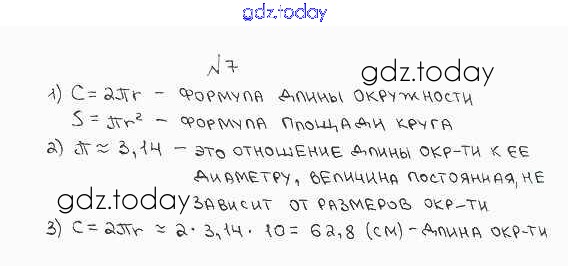 gdz.today
№7
gdz.today
1) C = 2πr – ФОРМУЛА ДЛИНЫ ОКРУЖНОСТИ
S = πr² – ФОРМУЛА ПЛОЩАДИ КРУГА
2) π ≈ 3,14 – ЭТО ОТНОШЕНИЕ ДЛИНЫ ОКР-ТИ К ЕЕ
ДИАМЕТРУ, ВЕЛИЧИНА ПОСТОЯННАЯ, НЕ
gdz.today
ЗАВИСИТ ОТ РАЗМЕРОВ ОКР-ТИ
3) C = 2πr ≈ 2 · 3,14 · 10 = 62,8 (СМ) – ДЛИНА ОКР-ТИ